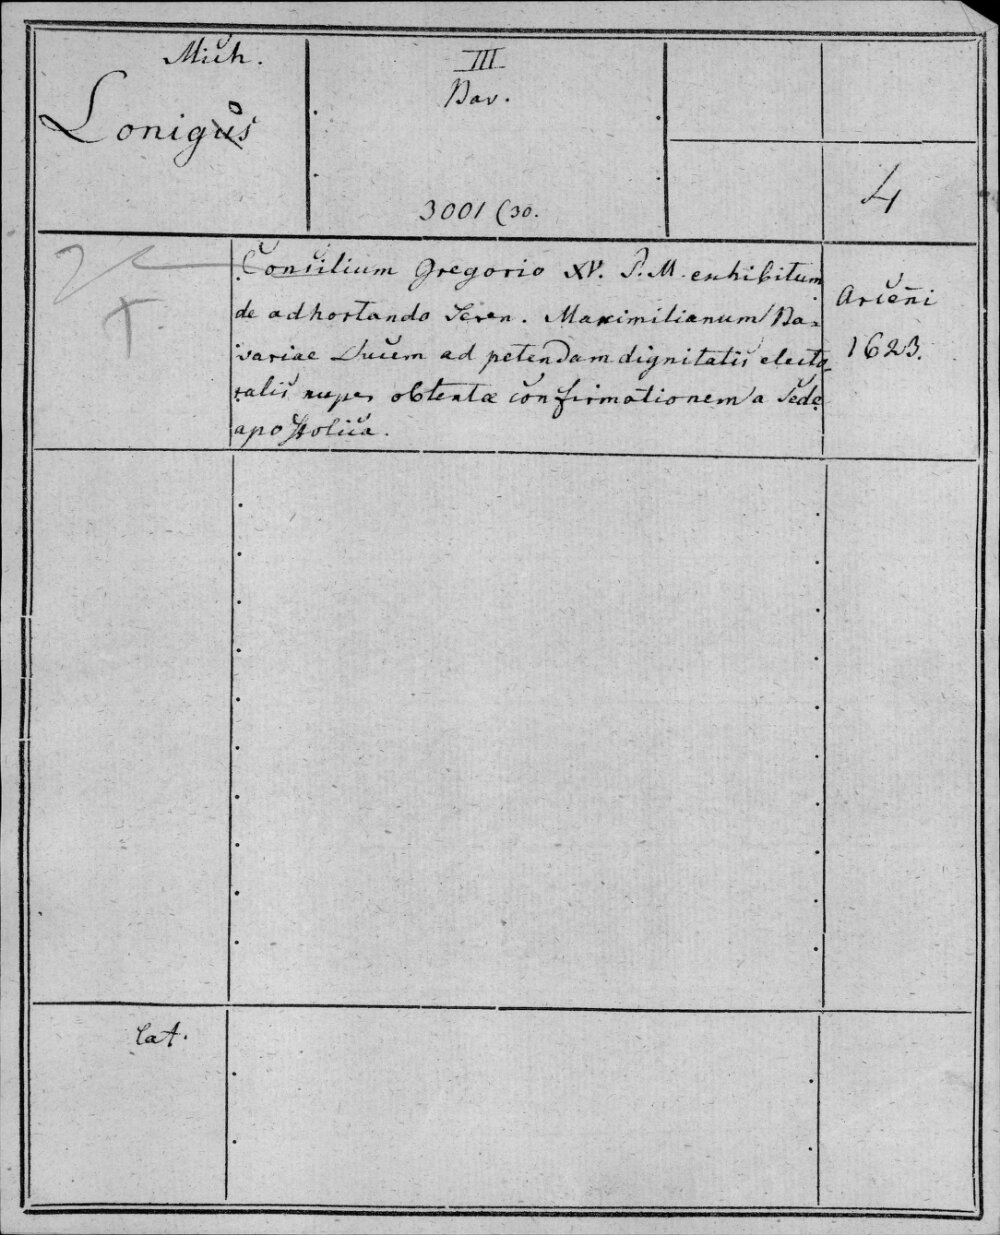 Mich.
Lonigus
o
III
Bav.
3001 (30.
4
Consilium Gregorio XV. P. M. exhibitum
de adhortando Seren. Maximilianum Ba-
variae Ducem ad petendam dignitatis electo-
ralis nuper obtentæ confirmationem a Sede
apostolica.
Arceñi
1623.
Lat.